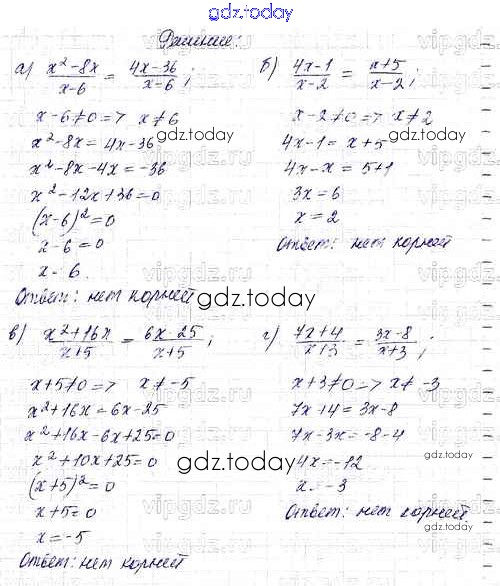 gdz.today
Решение:
а) (x² - 8x)/(x-6) = (4x-36)/(x-6);
x-6≠0 => x≠6
x²-8x = 4x-36
x²-8x-4x = -36
x²-12x+36=0
(x-6)²=0
x-6=0
x=6.
Ответ: нет корней
б) (4x-1)/(x-2) = (x+5)/(x-2);
x-2≠0 => x≠2
gdz.today
4x-1 = x+5
4x-x = 5+1
3x=6
x=2
Ответ: нет корней
gdz.today
в) (x²+16x)/(x+5) = (6x-25)/(x+5);
x+5≠0 => x≠-5
x²+16x=6x-25
x²+16x-6x+25=0
x²+10x+25=0
gdz.today
(x+5)²=0
x+5=0
x=-5
Ответ: нет корней
г) (7x+4)/(x+3) = (3x-8)/(x+3);
x+3≠0 => x≠-3
7x+4 = 3x-8
7x-3x = -8-4
4x=-12
x=-3
Ответ: нет корней.
gdz.today